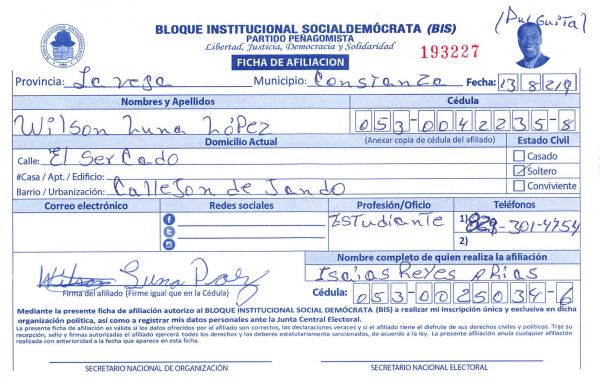 BLOQUE INSTITUCIONAL SOCIALDEMÓCRATA (BIS)
PARTIDO PEÑAGOMISTA
Libertad, Justicia, Democracia y Solidaridad
(Pulguita)
FICHA DE AFILIACION
193227
Provincia: La vega Municipio: Constanza Fecha: 13/8/219
Nombres y Apellidos
Cédula
Wilson Luna López
053-0042235-8
Domicilio Actual
(Anexar copia de cédula del afiliado)
Estado Civil
Calle: El Sercado
Casado
#Casa / Apt. / Edificio:
Soltero
Barrio / Urbanización: Callejon de Jando
Conviviente
Correo electrónico
Redes sociales
Profesión/Oficio
Teléfonos
Estudiante
1) 829-301-4754
2)
Nombre completo de quien realiza la afiliación
Isaias Reyes Arias
Wilson Luna Poez
Firma del afiliado (Firme igual que en la Cédula)
Cédula: 053-0025034-6
Mediante la presente ficha de afiliación autorizo al BLOQUE INSTITUCIONAL SOCIAL DEMÓCRATA (BIS) a realizar mi inscripción única y exclusiva en dicha
organización política, así como a registrar mis datos personales ante la Junta Central Electoral.
La presente ficha de afiliación es válida si los datos ofrecidos por el afiliado son correctos, las declaraciones veraces y si el afiliado tiene el disfrute de sus derechos civiles y políticos. Tras su
recepción, sello y firmas autorizadas el afiliado ejercerá todos los derechos y los deberes estatutariamente sancionados, de acuerdo a la ley. La presente afiliación anula cualquier afiliación
realizada con anterioridad a la fecha que aparece en esta ficha.
SECRETARIO NACIONAL DE ORGANIZACIÓN
SECRETARIO NACIONAL ELECTORAL